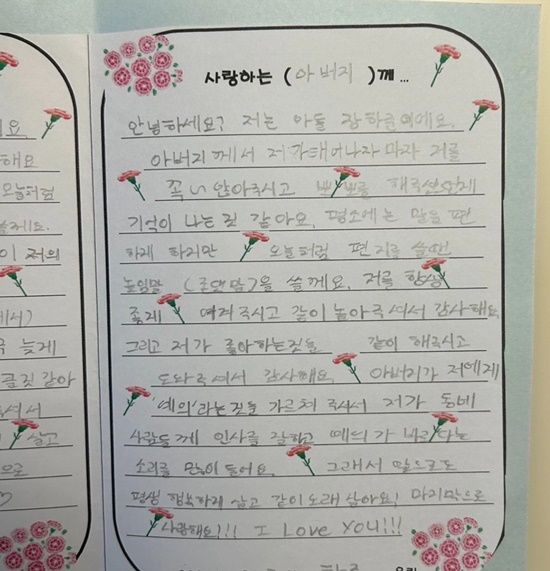 사랑하는 (아버지)께...
안녕하세요? 저는 아들 장하준이에요.
아버지께서 저가 태어나자 마자 저를
꼭 안아주시고 뽀뽀를 해주셨던게
기억이 나는 것 같아요. 평소에는 말을 편
하게 하지만 오늘처럼 편지를 쓸땐
높임말 (존댓말)을 쓸께요. 저를 항상
좋게 여겨주시고 같이 놀아주셔서 감사해요
그리고 저가 좋아하는것을 같이 해주시고
도와주셔서 감사해요. 아버지가 저에게
'예의'라는것을 가르쳐 주셔서 저가 동네
사람들께 인사를 잘하고 예의가 바르다는
소리를 많이 들어요. 그래서 앞으로도
평생 행복하게 살고 같이 오래 살아요! 마지막으로
사랑해요!!! I Love You!!!
요
해요
오늘처럼
쓸게요.
이 저의
에서)
늦게
것 같아
셔서
살고
으로